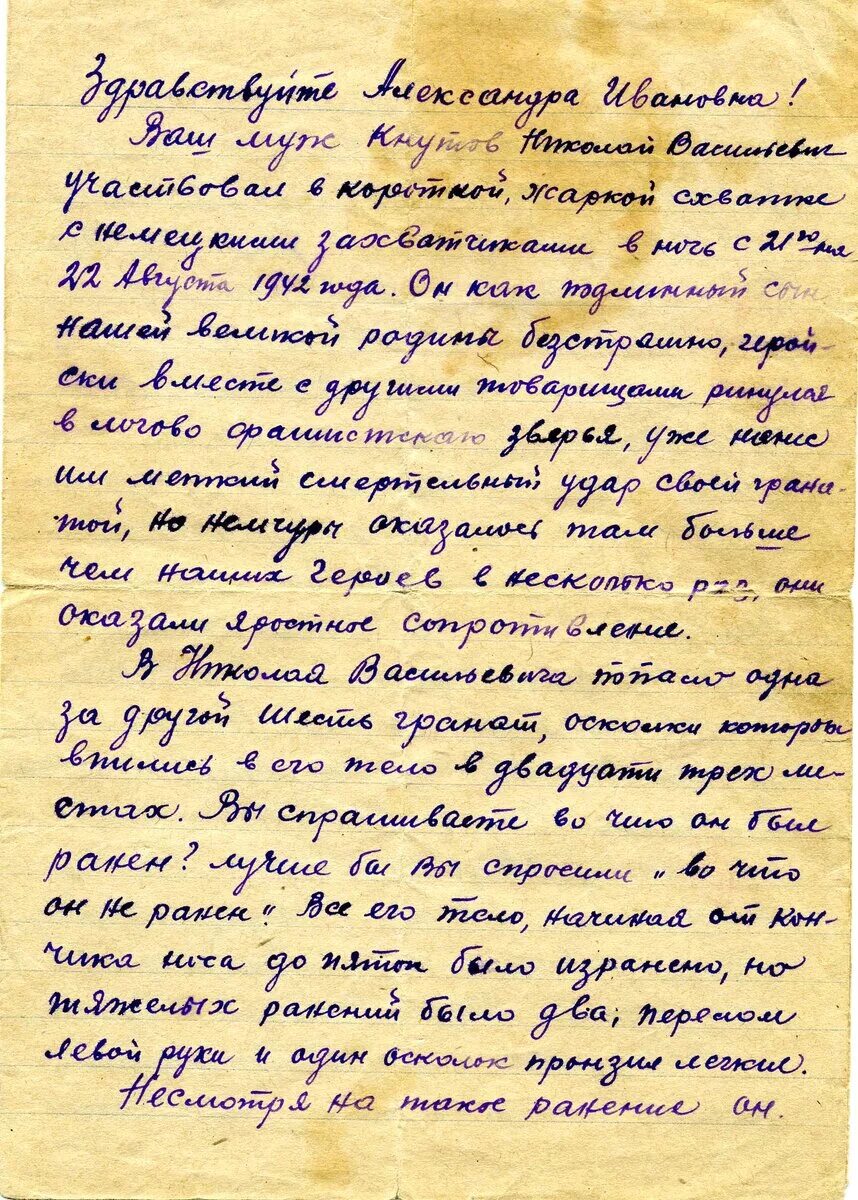 Здравствуйте Александра Ивановна!
Ваш муж Кнутов Николай Васильевич
участвовал в короткой, жаркой схватке
с немецкими захватчиками в ночь с 21го на
22 Августа 1942 года. Он как подлинный сын
нашей великой родины безстрашно, герой-
ски вместе с другими товарищами ринулся
в логово фашистскаго зверья, уже нанес
им меткий смертельный удар своей грана-
той, но немчуры оказалось там больше
чем наших героев в несколько раз, они
оказали яростное сопротивление.
В Николая Васильевича попало одна
за другой шесть гранат, осколки которых
впились в его тело в двадцати трех ме-
стах. Вы спрашиваете во что он был
ранен? лучше бы Вы спросили „во что
он не ранен“. Все его тело, начиная от кон-
чика носа до пяток было изранено, но
тяжелых ранений было два; перелом
левой руки и один осколок пронзил легкие.
Несмотря на такое ранение он.